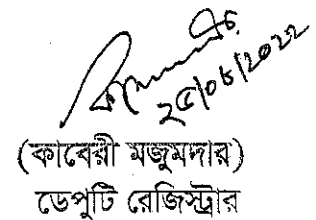 ২৫/০৮/২০২২
(কাবেরী মজুমদার)
ডেপুটি রেজিস্ট্রার